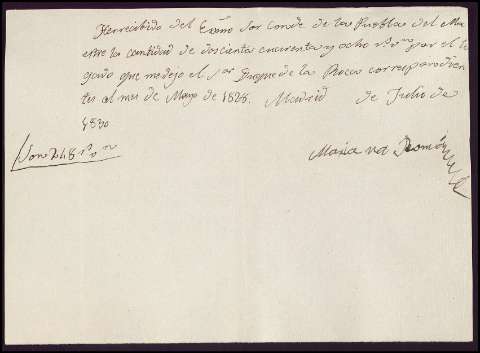 He recibido del Exmo Sor Conde de la Puebla del Ma
estre la cantidad de doscientos cincuenta y ocho rs vn por el le
gado que me dejo el Sor Duque de la Roca correspondien
tes al mes de Mayo de 1828. Madrid de Julio de
1830
Son 248 rs vn
Maria